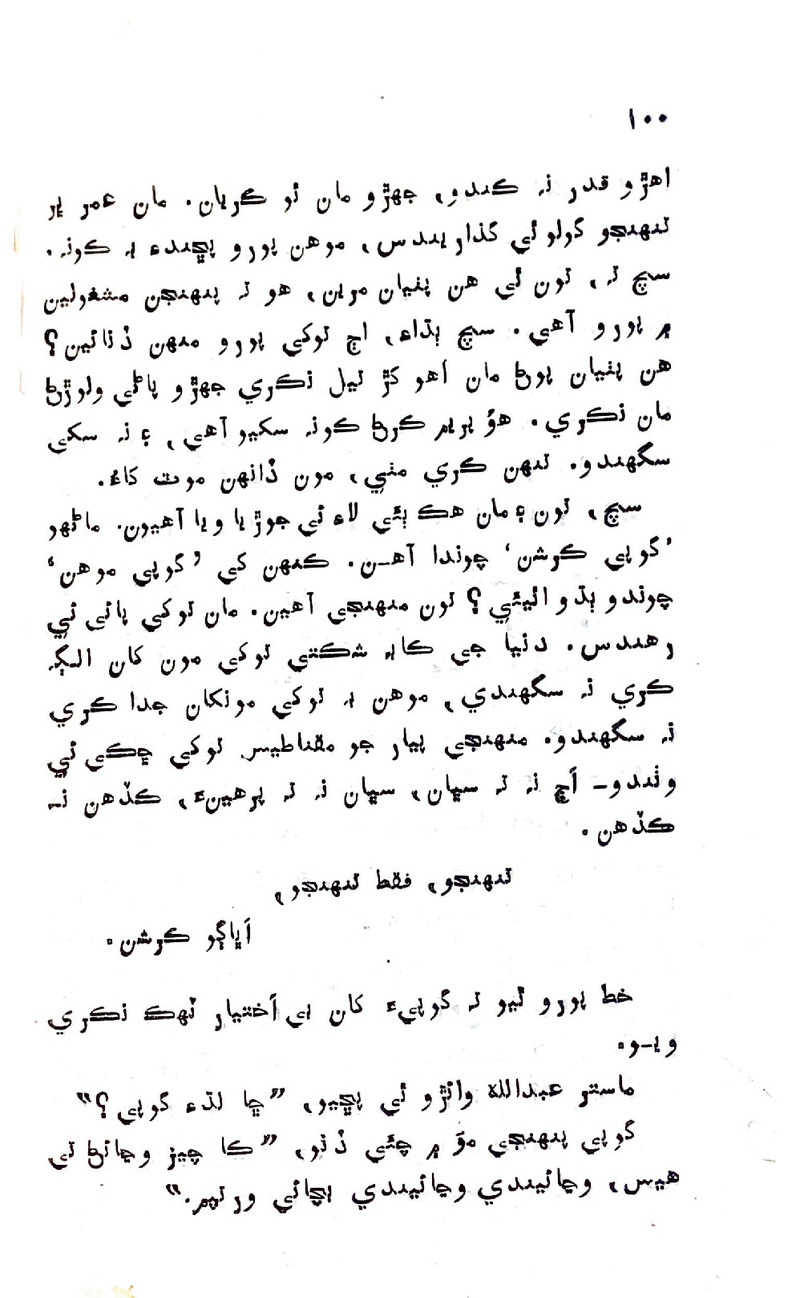 ١٠٠
اهڙو قدر نہ ڪندو، جهڙو مان ٿو ڪريان. مان عمر ڀر
تنهنجو گولو ٿي گذاريندس، موهن پورو پڇندءِ بہ ڪونہ.
سچ تہ، تون ٿي هن پٺيان مرين، هو تہ پنهنجن مشغولين
۾ پورو آهي. سچ ٻڌاءِ، اڄ توکي پورو منهن ڏنائين؟
هن پٺيان پوڻ مان اهو ڪڙ تيل نڪري جهڙو پاڻي ولوڙڻ
مان نڪري. هوُ پريم ڪرڻ ڪونہ سکيو آهي، ۽ نہ سکي
سگهندو. تنهن ڪري مٺي، مون ڏانهن موٽ کاءُ.
سچ، تون ۽ مان هڪ ٻئي لاءِ ئي جوڙيا ويا آهيون. ماڻهو
’گوپي ڪرشن‘ چوندا آهـن. ڪنهن کي ’گوپي موهن‘
چوندو ٻڌو اٿيئي؟ تون منهنجي آهين. مان توکي پائي ئي
رهندس. دنيا جي ڪابہ شڪتي توکي مون کان الڳ
ڪري نہ سگهندي، موهن بہ توکي مونکان جدا ڪري
نہ سگهندو. منهنجي پيار جو مقناطيس توکي ڇڪي ئي
وٺندو– اڄ نہ تہ سڀان، سڀان نہ تہ پرهينءَ، ڪڏهن نـ
ڪڏهن.
تنهنجو، فقط تنهنجو،
اَڀاڳو ڪرشن.
خط پورو ٿيو تہ گوپيءَ کان بي اَختيار ٽهڪ نڪري
ويـو.
ماستر عبدالله وائڙو ٿي پڇيو، ”ڇا لڌءِ گوپي؟“
گوپي پنهنجي موَ ۾ چئي ڏنو، ”ڪا چيز وڃائڻ ٿي
هيس، وڃائيندي وڃائيندي بچائي ورتم.“